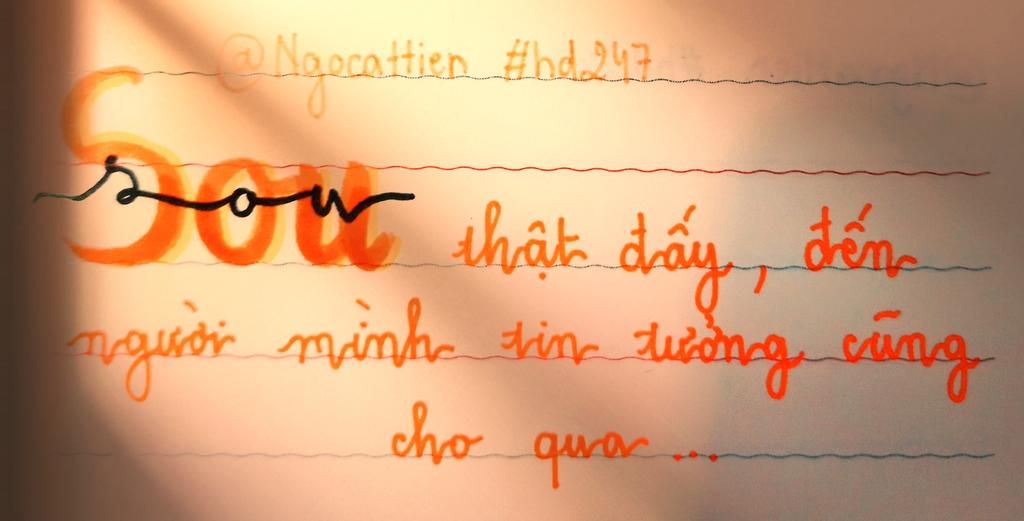 @Ngocattien #hd247
Sou sou thật đấy, đến
người mình tin tưởng cũng
cho qua...